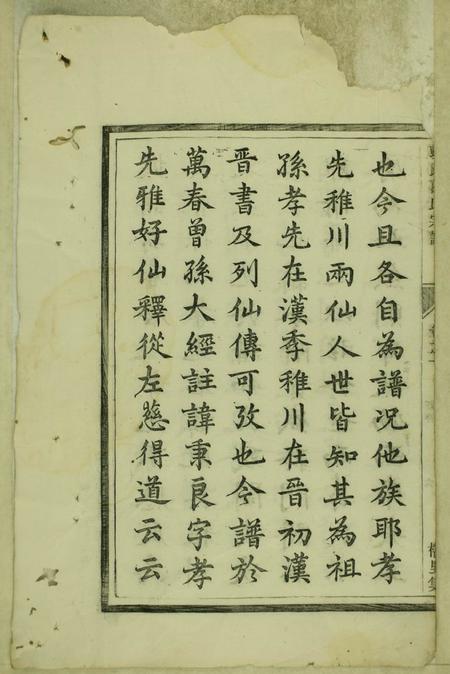 也今且各自為譜況他族耶孝
先稚川兩仙人世皆知其為祖
孫孝先在漢季稚川在晉初漢
晉書及列仙傳可攷也今譜於
萬春曾孫大經註諱秉良字孝
先雅好仙釋從左慈得道云云